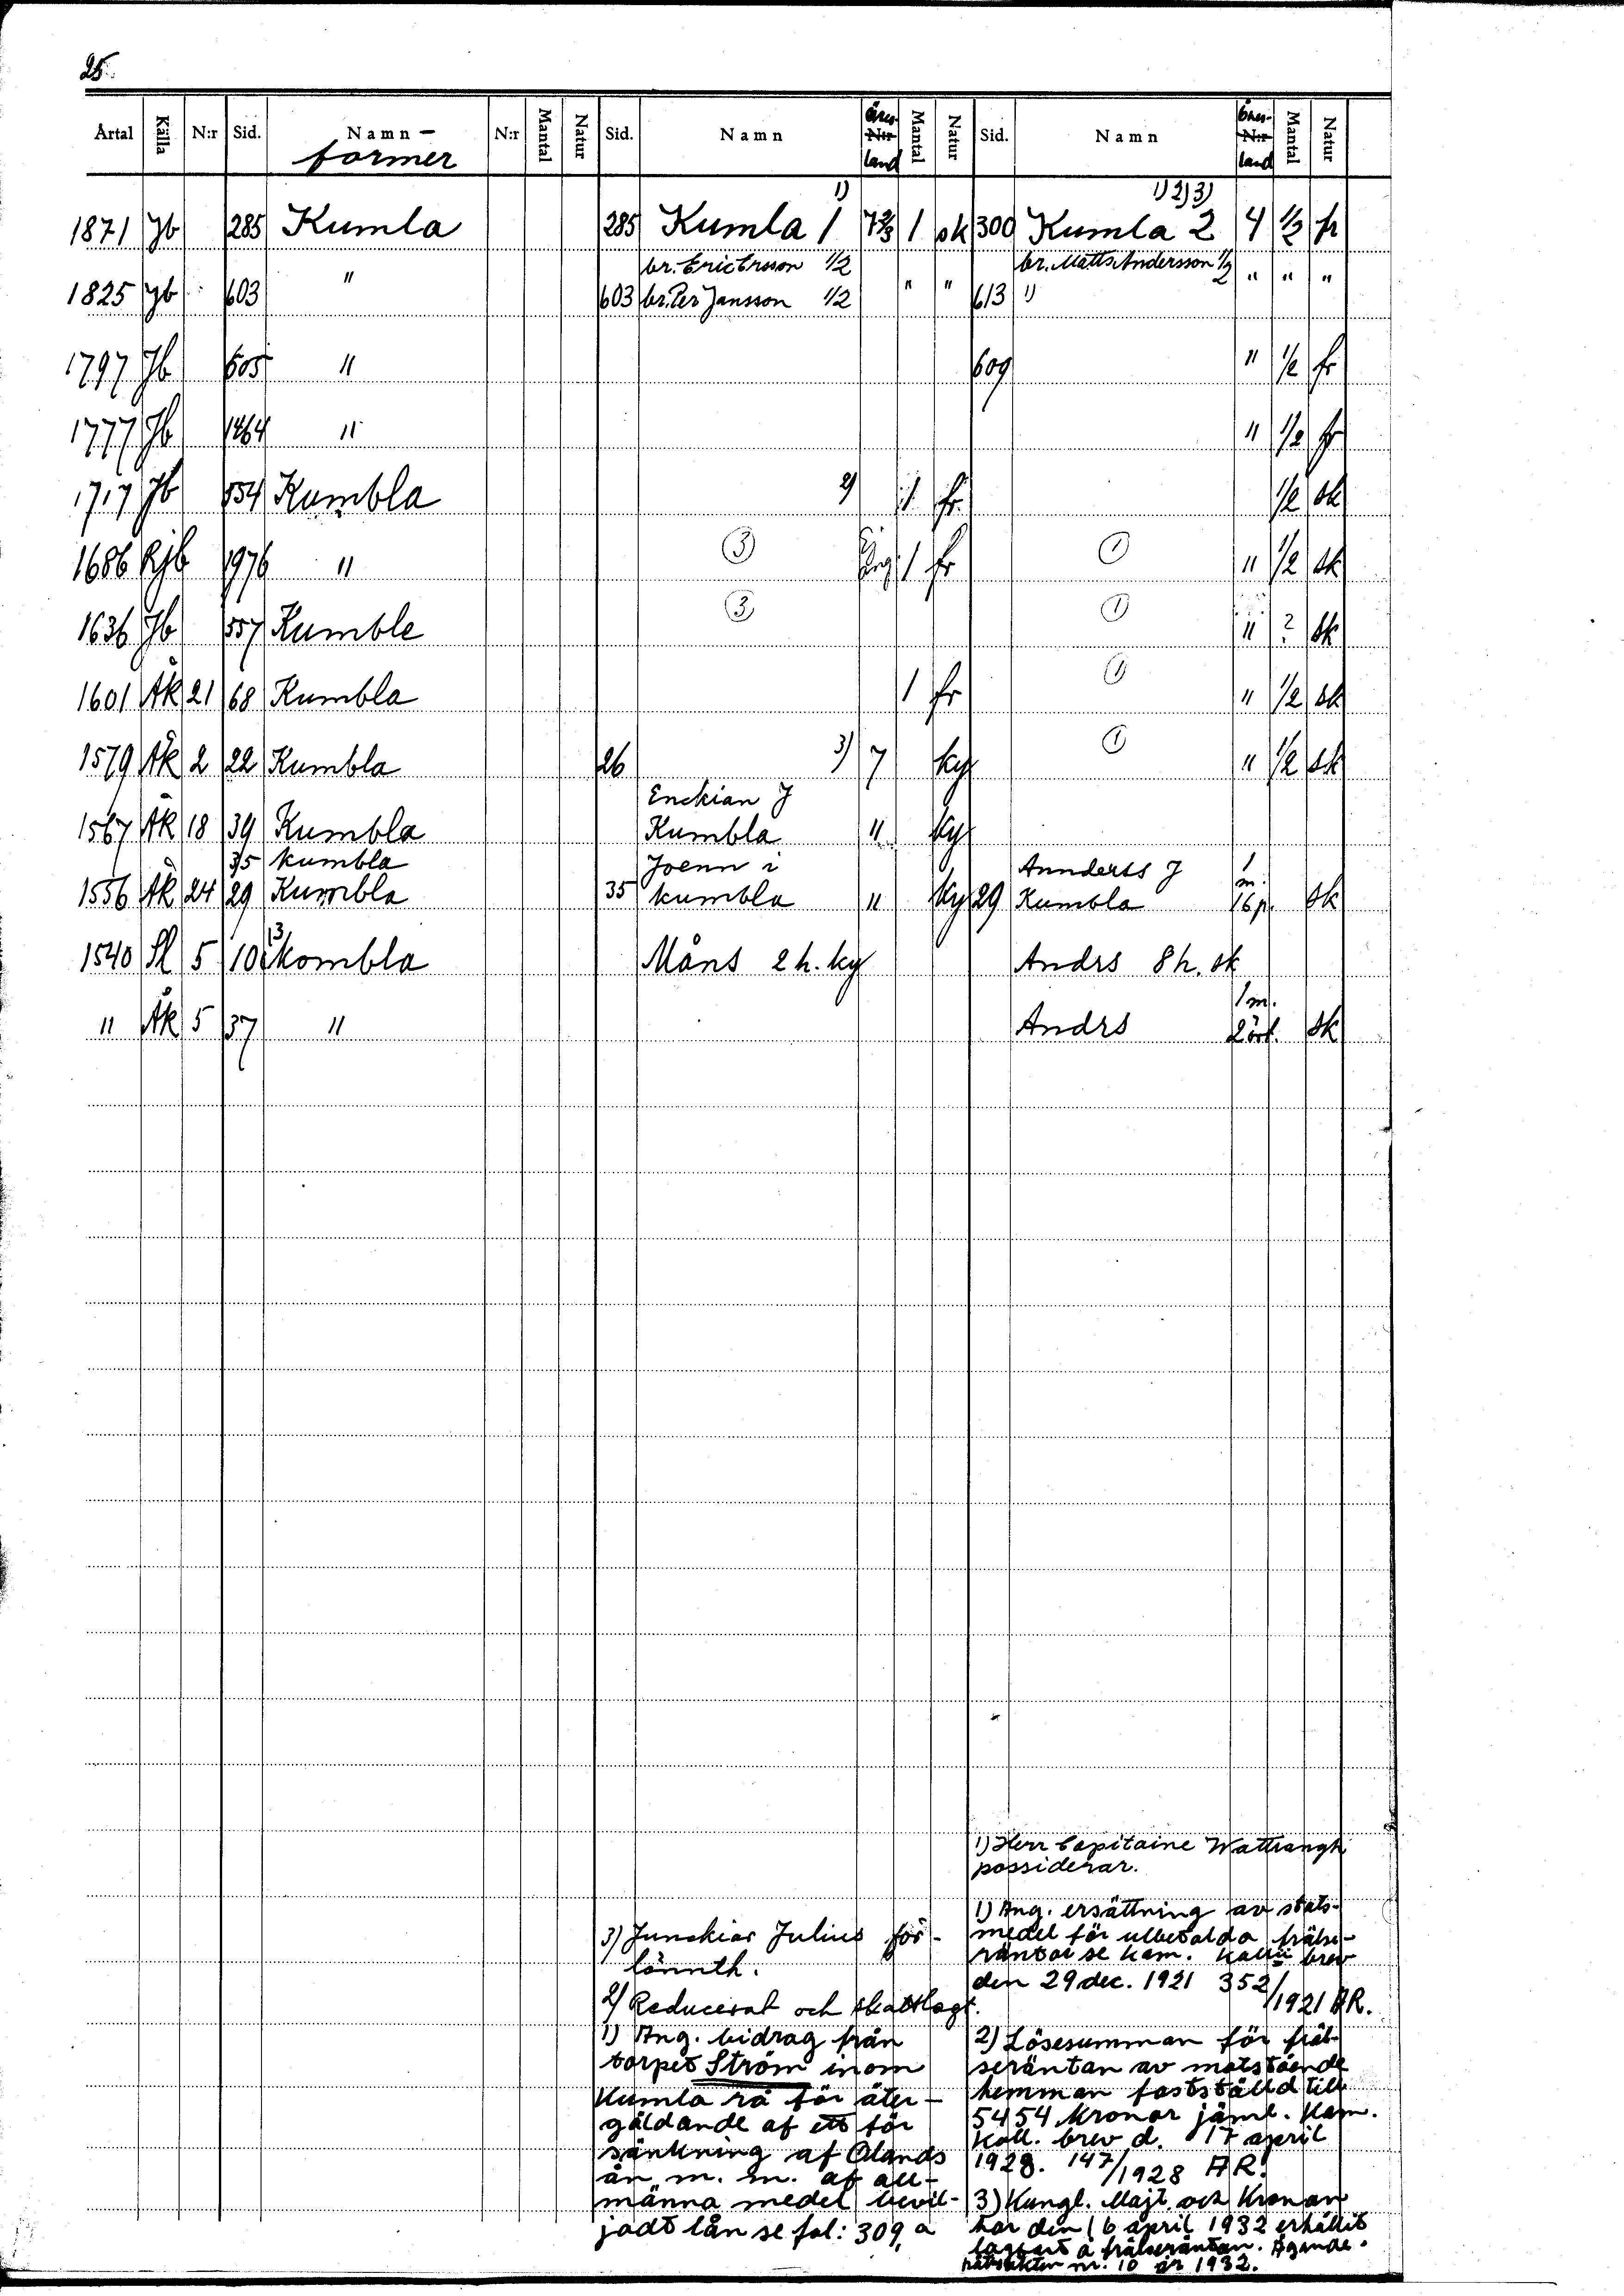 25.
Årtal Källa N:r Sid. Namn- N:r Mantal Natur Sid. Namn Öres- N:r Mantal Natur Sid. Namn Öres- N:r Mantal Natur
former land land
1) 1) 2) 3)
1871 Jb 285 Kumla 285 Kumla 1 7 2/3 1 sk 300 Kumla 2 4 1/2 fr
br. Eric Ersson 1/2 br. Matts Andersson 1/2
1825 Jb 603 " 603 br. Per Jansson 1/2 " " 613 1) " " "
1797 Jb 605 " 609 " 1/2 fr
1777 Jb 1464 " " 1/2 fr
1717 Jb 554 Kumbla 2) 1 fr. 1/2 sk
1686 Rjb 1976 " 3 1 fr 1 " 1/2 sk
1636 Jb 557 Kumble 3 1 " ? sk
1601 Åk 21 68 Kumbla 1 fr 1 " 1/2 sk
1579 Åk 2 22 Kumbla 26 3) 7 ky 1 " 1/2 sk
Enckian J
1567 Åk 18 39 Kumbla Kumbla " ky
35 kumbla Joenn i Annderss J 1 m.
1556 Åk 24 29 Kumbla 35 kumbla " ky 29 Kumbla 16 p. sk
13
1540 Sl 5 10 kombla Måns 2 h. ky Andrs 8 h. sk
1 m.
" Åk 5 37 " Andrs 2 ört. sk
1) Herr Capitaine Wattrangh
possiderar.
1) Ang. ersättning av stats-
medel för utbetalda frälse-
räntor se kam. kollii brev
den 29 dec. 1921 352/1921 AR.
2) Lösesumman för fräl-
seräntan av motstående
hemman fastställd till
5454 kronor jäml. Kam.
Koll. brev d. 17 april
1928. 147/1928 AR.
3) Kungl. Majt. och Kronan
har den 16 april 1932 erhållit
lagfart å frälseräntan. Ägande-
rättsakten nr. 10 år 1932.
3) Junckiar Julius för-
lönnth.
2) Reducerat och skattlagt.
1) Ang. bidrag från
torpet Ström inom
Kumla rå för åter-
gäldande af ett för
sänkning af Olands
ån m. m. af all-
männa medel bevil-
jadt lån se fol: 309, a